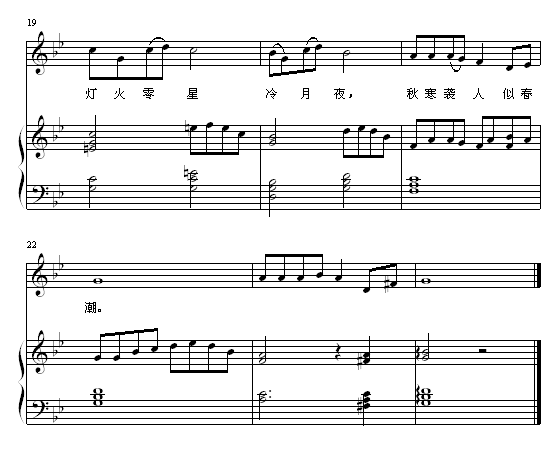 19
灯火零星 冷月夜，秋寒袭人似春
22
潮。